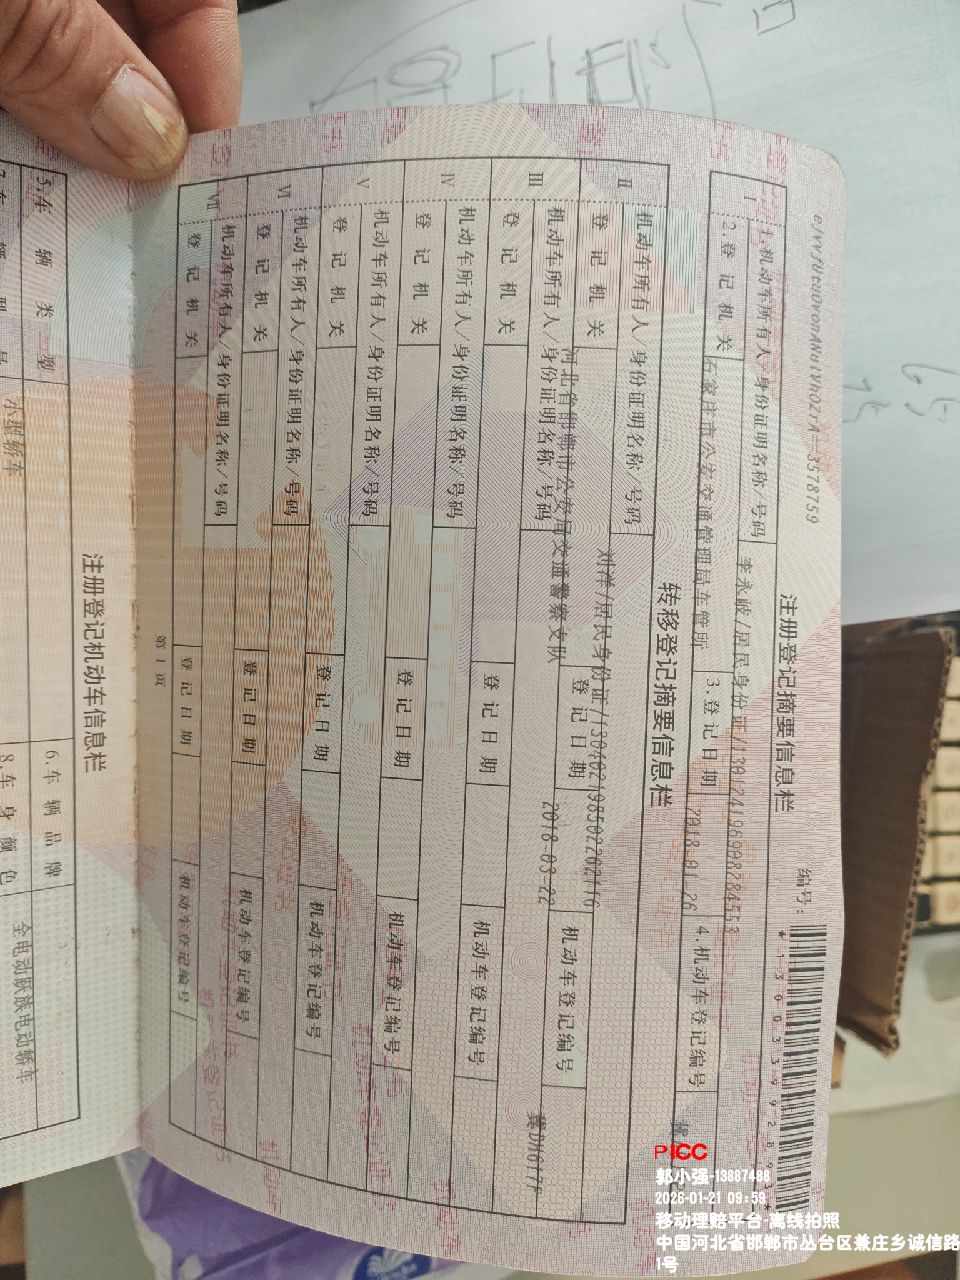 注册登记摘要信息栏
编号:
*130033992893*
I
1.机动车所有人/身份证明名称/号码
李永岐/居民身份证/130124196908284553
2.登记机关
石家庄市公安交通管理局车管所
3.登记日期
2018-01-26
4.机动车登记编号
转移登记摘要信息栏
II
机动车所有人/身份证明名称/号码
刘洋/居民身份证/130402198502202116
登记机关
河北省邯郸市公安局交通警察支队
登记日期
2018-03-22
机动车登记编号
冀DD1617F
III
机动车所有人/身份证明名称/号码
登记机关
登记日期
机动车登记编号
IV
机动车所有人/身份证明名称/号码
登记机关
登记日期
机动车登记编号
V
机动车所有人/身份证明名称/号码
登记机关
登记日期
机动车登记编号
VI
机动车所有人/身份证明名称/号码
登记机关
登记日期
机动车登记编号
VII
机动车所有人/身份证明名称/号码
登记机关
登记日期
机动车登记编号
第1页
注册登记机动车信息栏
5.车辆类型
小型轿车
6.车辆品牌
全电动联族电动轿车
7.车辆型号
8.车身颜色
PICC
郭小强-13887488
2026-01-21 09:59
移动理赔平台-离线拍照
中国河北省邯郸市丛台区兼庄乡诚信路
1号